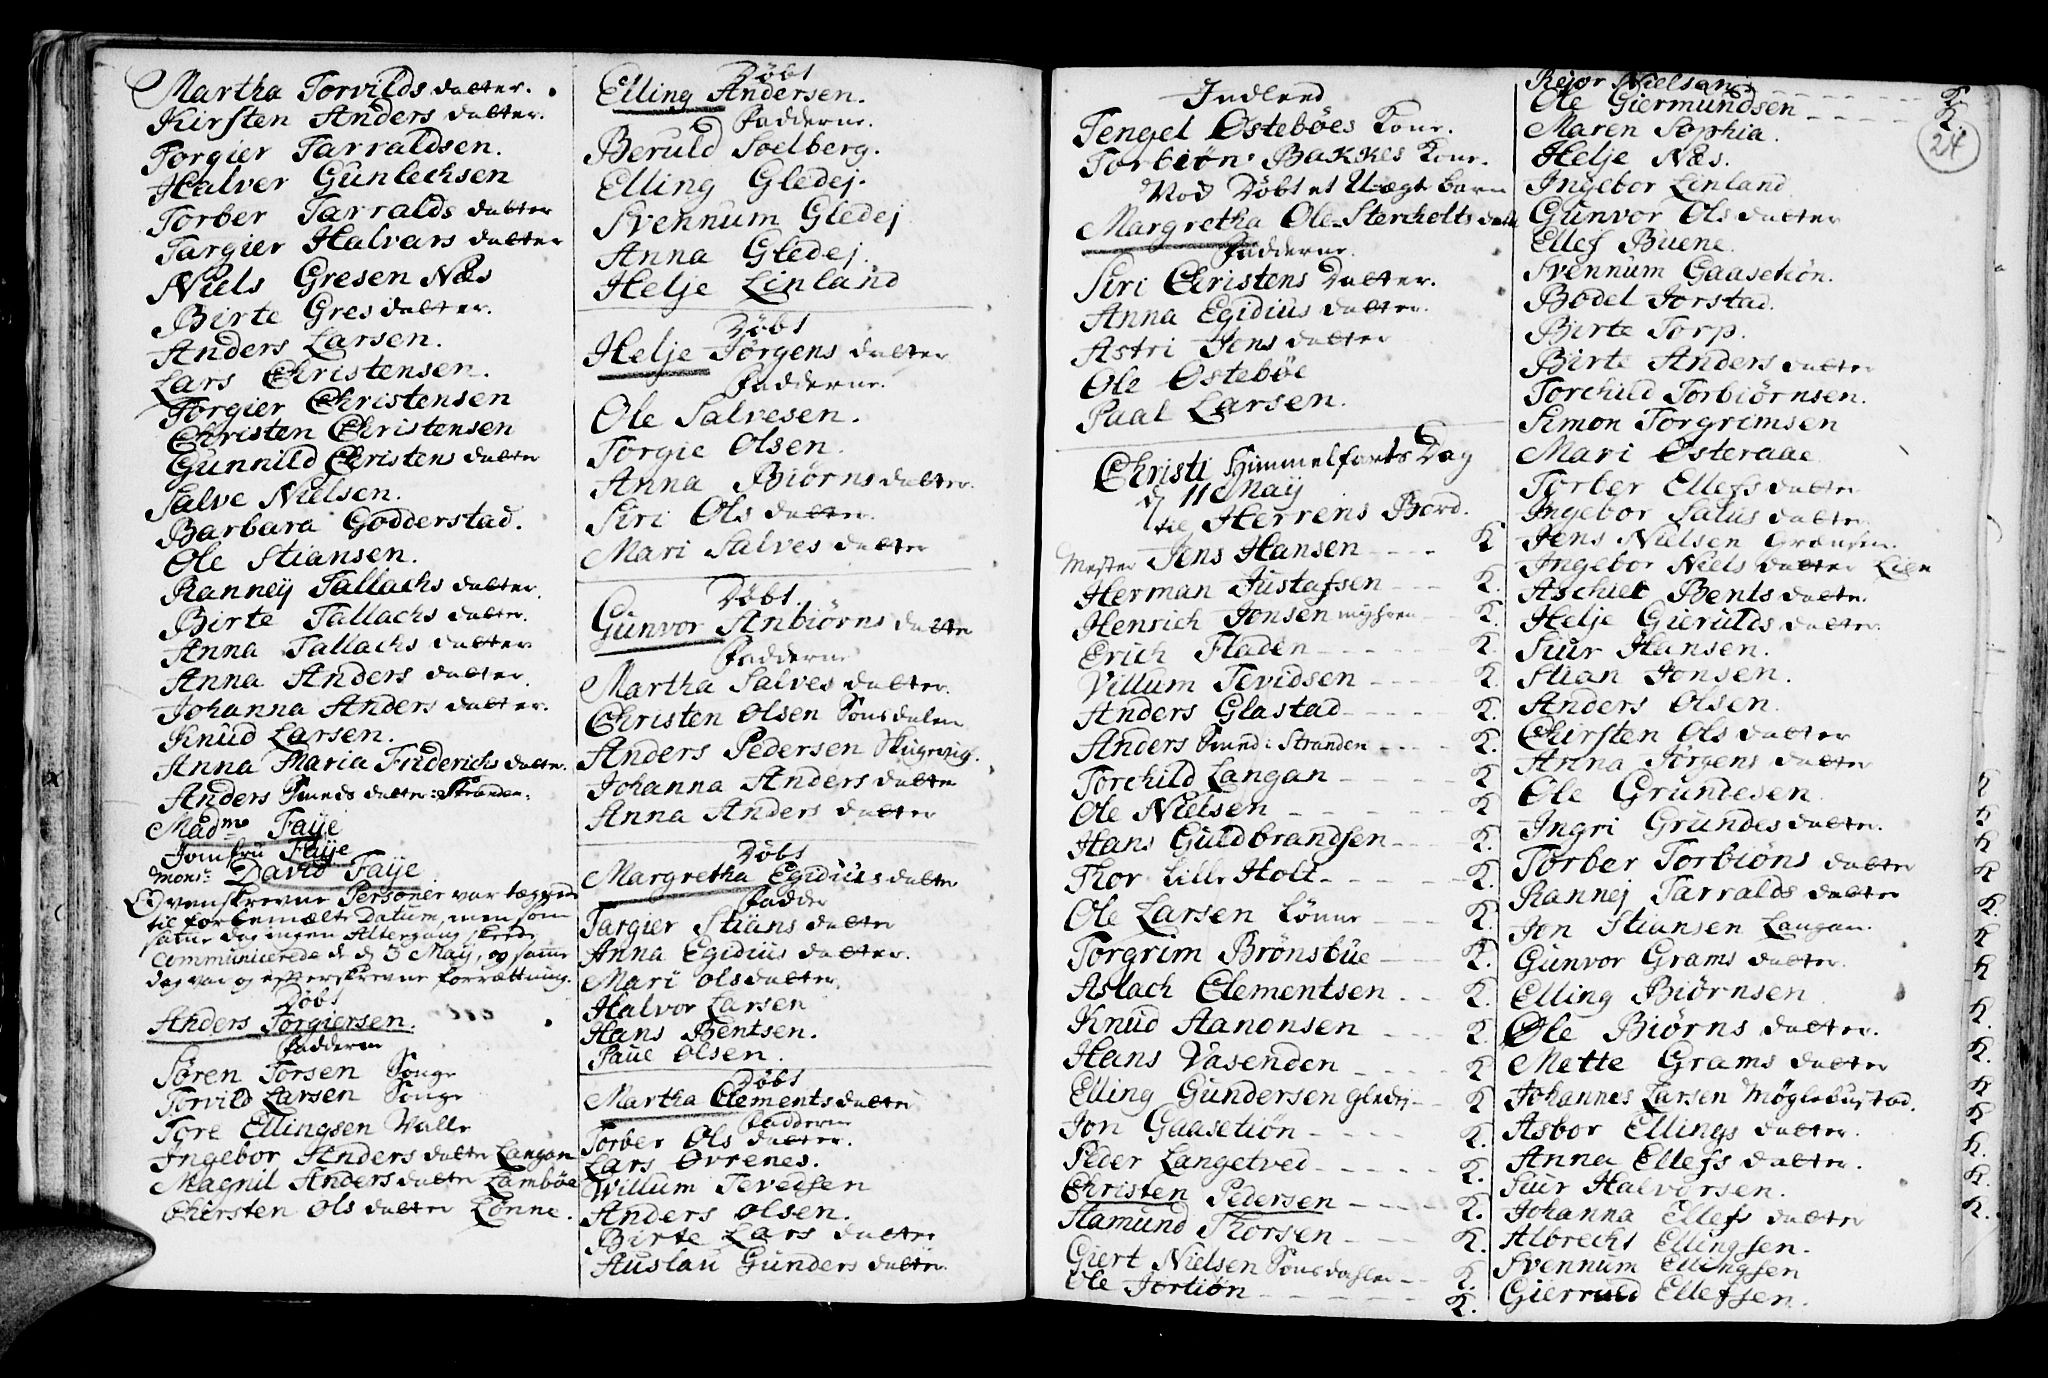 Martha Torvilds datter.
Kirsten Anders datter.
Torgier Tarraldsen.
Halver Gunlechsen
Torber Tarralds datter
Targier Halvars datter
Niels Gresen Næs
Birte Gresdatter.
Anders Larsen.
Lars Christensen.
Torgier Christensen
Christen Christensen
Gunnild Christens datter
Salve Nielsen.
Barbara Godderstad.
Ole Stiansen.
Ranneÿ Tallachs datter.
Birte Tallachs datter.
Anna Tallachs datter
Anna Anders datter.
Johanna Anders datter.
Knud Larsen.
Anna Maria Friderichs datter.
Anders Smeds datter: Stranden:
Madme Faÿe
Jomfru Faÿe
Monsr David Faÿe
Ovenskrevne Personer var tegnede
til forbemælte Datum, men som
samme dag ingen Altergang skeede
communicerede de d 3 Maÿ, og samme
dag var og efterskrevne forrættning.
Døbt
Anders Torgiersen.
Fadderne
Søren Torsen Songe
Torvild Larsen Songe
Tore Ellingsen Valle
Ingebor Anders datter Langan
Magnil Anders datter Lambøe
Chersten Ols datter Lønne.
Døbt
Elling Andersen.
Fadderne.
Beruld Soelberg.
Elling Gledej.
Svennum Gledej
Anna Gledej.
Helje Linland
Døbt
Helje Jørgens datter
Fadderne.
Ole Salvesen.
Torgie Olsen.
Anna Biørns datter.
Siri Ols datter.
Mari Salves datter
Døbt.
Gunvor Anbiørns datter
Fadderne
Martha Salves datter.
Christen Olsen Sonsdalen
Anders Pedersen Skugrevig.
Johanna Anders datter
Anna Anders datter
Døbt
Margretha Egidius datter
Fadder
Targier Stians datter
Anna Egidius datter.
Mari olsdatter.
Halvor Larsen
Hans Bentsen.
Paul Olsen.
Døbt
Martha Clements datter
Fadderne
Torber Ols datter.
Lars Øvrenes.
Willum Tevedsen
Anders Olsen.
Birte Lars datter
Auslau Gunders datter.
Indleed
Tengel Østebøes Kone.
Torbiøn Bakkes Kone.
Nod Døbt et Uægte barn
Margretha Ole Stercholts datt
Fadderne.
Siri Christens Datter.
Anna Egidius datter.
Astri Jons datter
Ole Østebøe
Paal Larsen.
Christi Himmelfarts Dag
d 11 Maÿ
til Herrens Bord.
Mester Jens Hansen - - - - K
Herman Justafsen - - - K.
Henrich Jonsen - - K.
Erich Fladen - - - - - - K.
Villum Tevidsen - - - - - K.
Anders Glastad - - - - - K.
Anders Smed: Stranden - - - - K.
Torchild Langan - - - - - K
Ole Nielsen - - - - - - - K
Hans Guldbrandsen - - - - K.
Thor Lille Holt - - - - - - K.
Ole Larsen Lønne - - - K.
Torgrim Brønsbue - - - K.
Aslach Clementsen - - - K.
Knud Aanonsen - - - - K.
Hans Vasenden - - - - - K
Elling Gundersen Gledej - - K
Jon Gaasetiøn - - - - K.
Peder Langetved - - - - - K.
Christen Pedersen - - - - K.
Aamund Thorsen - - - - K.
Giert Nielsen Sonsdahlen - - K.
Ole Jortiøn - - - - - - - K.
Rejor Nielsen - - - - - - - - K
Ole Giermundsen - - - - K
24
Maren Sophia.
Helje Næs.
Ingebor Linland
Gunvor Ols datter
Ellef Buene.
Svennum Gaasetiøn.
Bodel Jorstad.
Birte Torp.
Birte Anders datter
Torchild Torbiørnsen.
Simon Torgrimsen
Mari Østeraae.
Torber Ellefs datter
Ingebor Salus datter
Jens Nielsen Grønsen.
Ingebor Niels datter Lien
Aschiel Bents datter.
Helje Gierulds datter
Siur Hansen.
Stian Jonsen.
Anders Olsen.
Chersten Ols datter
Anna Jørgens datter
Ole Grundesen. K
Ingri Grundes datter. K
Torber Torbiøns datter K
Rannej Tarralds datter K
Jon Stiansen Langan. K.
Gunvor Grams datter. K
Elling Biørnsen K
Ole Biørns datter. K.
Mette Grams datter K.
Johannes Larsen Møglebustad. K
Asbor Ellings datter. K
Anna Ellefs datter. K.
Siur Halvorsen. K.
Johanna Ellefs datter K.
Albrecht Ellingsen.
Svennum Ellingsen
Gierruld Ellefsen.